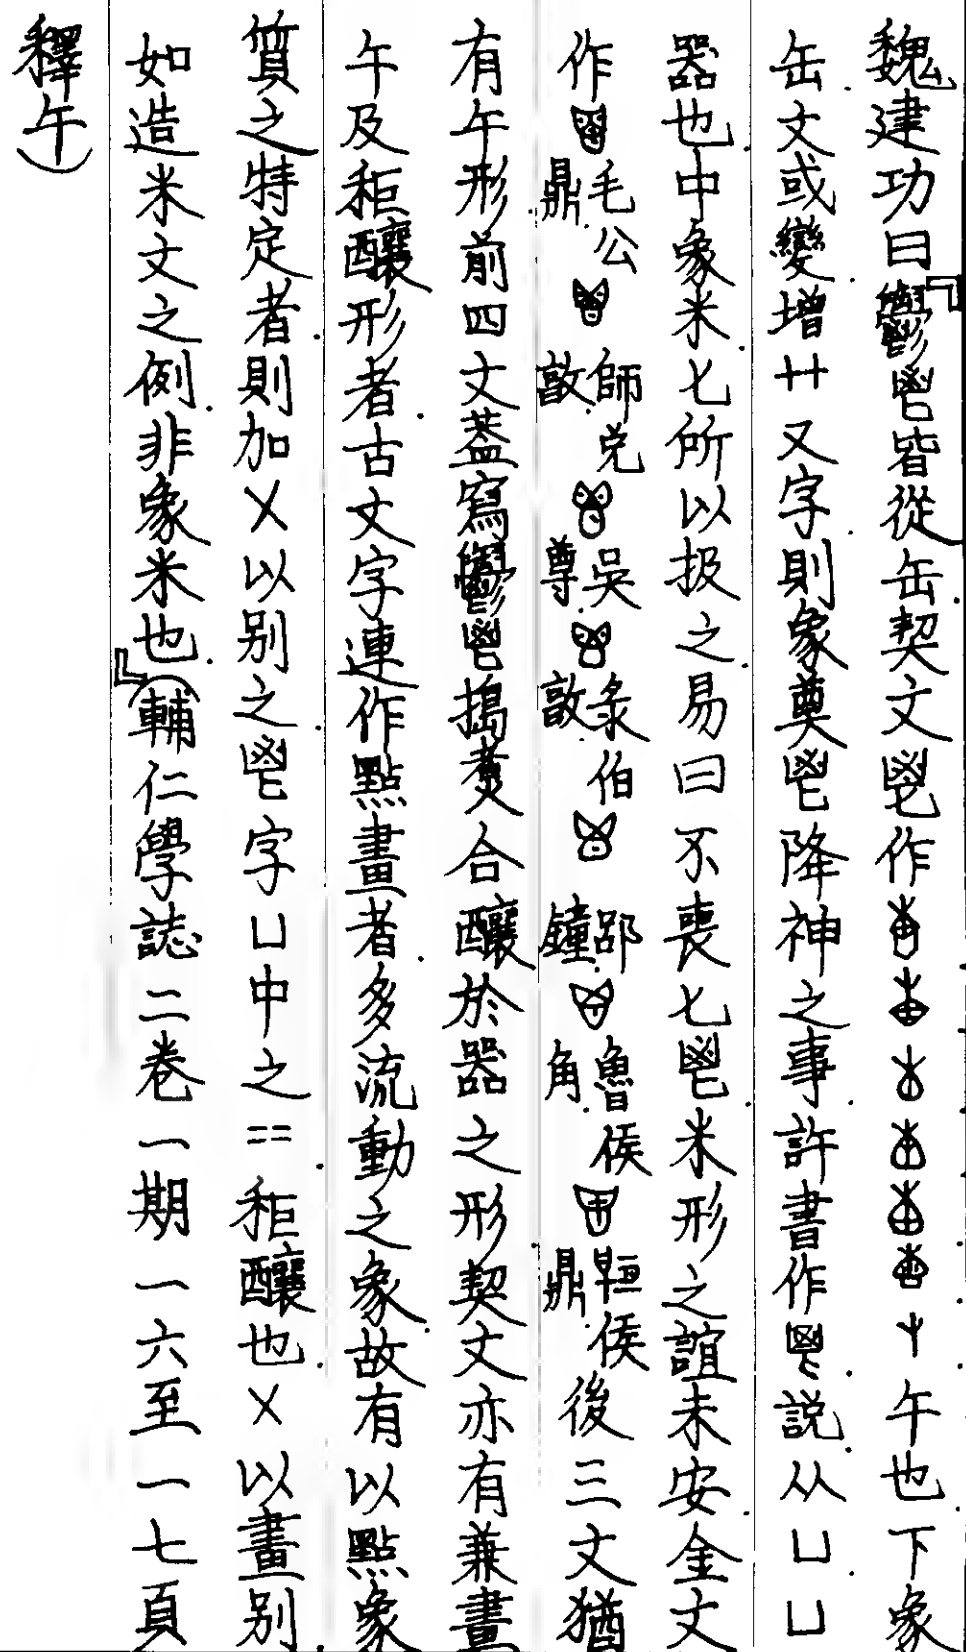 魏建功曰「鬱鬯皆從缶契文鬯作午也下象
缶文或變增廾又字則象奠鬯降神之事許書作鬯説从凵凵
器也中象米匕所以扱之易曰不喪匕鬯米形之誼未安金文
作毛公鼎師兌敦吳尊彔伯敦郘鐘魯侯角𣄴侯鼎後三文猶
有午形前四文蓋寫鬱鬯搗煑合釀於器之形契文亦有兼畫
午及秬釀形者古文字連作點畫者多流動之象故有以點象
質之特定者則加乂以别之鬯字凵中之秬釀也乂以畫别
如造米文之例非象米也」(輔仁學誌二卷一期一六至一七頁
釋午)